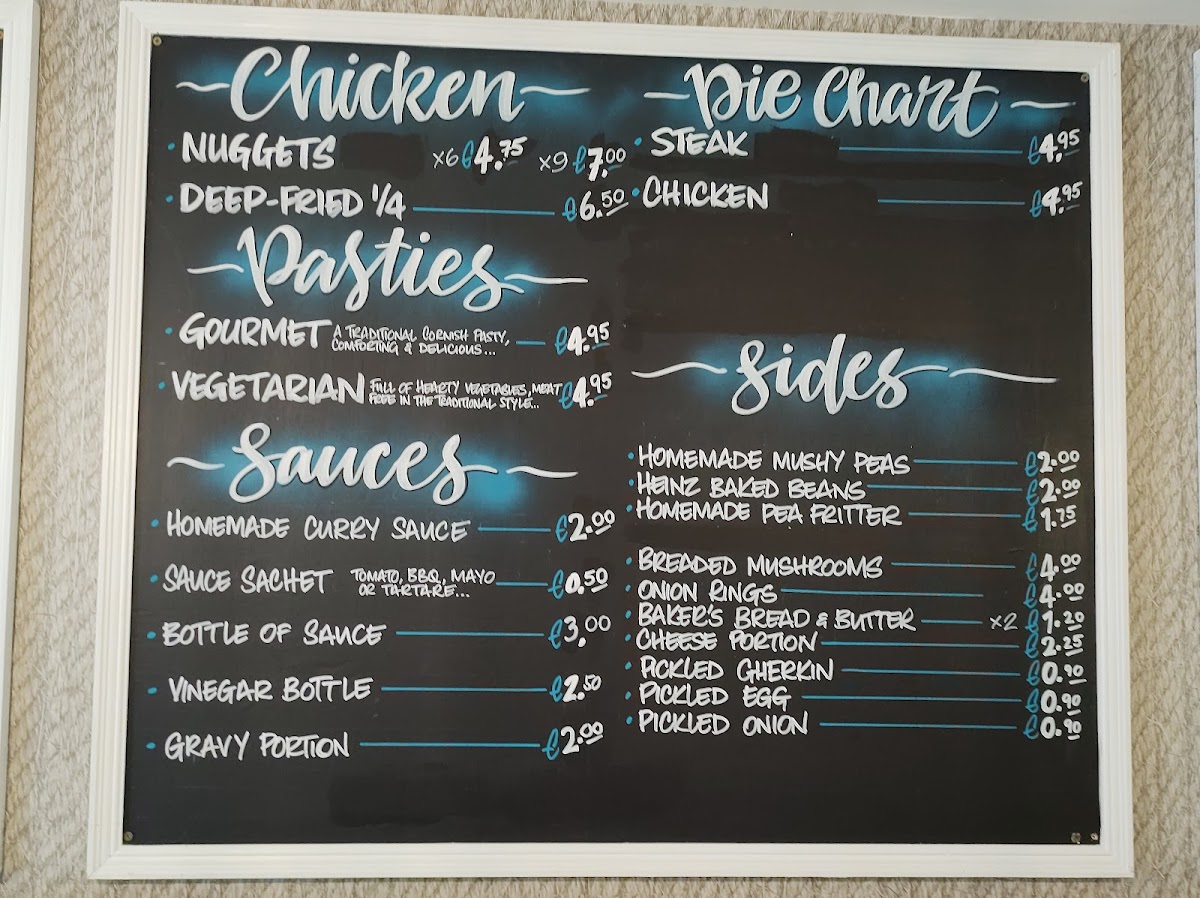 Chicken
• NUGGETS x6 £4.75 x9 £7.00
• DEEP-FRIED 1/4 £6.50
Pasties
• GOURMET A TRADITIONAL CORNISH PASTY, £4.95
COMFORTING & DELICIOUS...
• VEGETARIAN FULL OF HEARTY VEGETABLES, MEAT £4.95
FREE IN THE TRADITIONAL STYLE...
Sauces
• HOMEMADE CURRY SAUCE £2.00
• SAUCE SACHET TOMATO, BBQ, MAYO £0.50
OR TARTARE...
• BOTTLE OF SAUCE £3.00
• VINEGAR BOTTLE £2.50
• GRAVY PORTION £2.00
Pie Chart
• STEAK £4.95
• CHICKEN £4.95
Sides
• HOMEMADE MUSHY PEAS £2.00
• HEINZ BAKED BEANS £2.00
• HOMEMADE PEA FRITTER £1.75
• BREADED MUSHROOMS £4.00
• ONION RINGS £4.00
• BAKER'S BREAD & BUTTER x2 £1.20
• CHEESE PORTION £2.25
• PICKLED GHERKIN £0.90
• PICKLED EGG £0.90
• PICKLED ONION £0.90